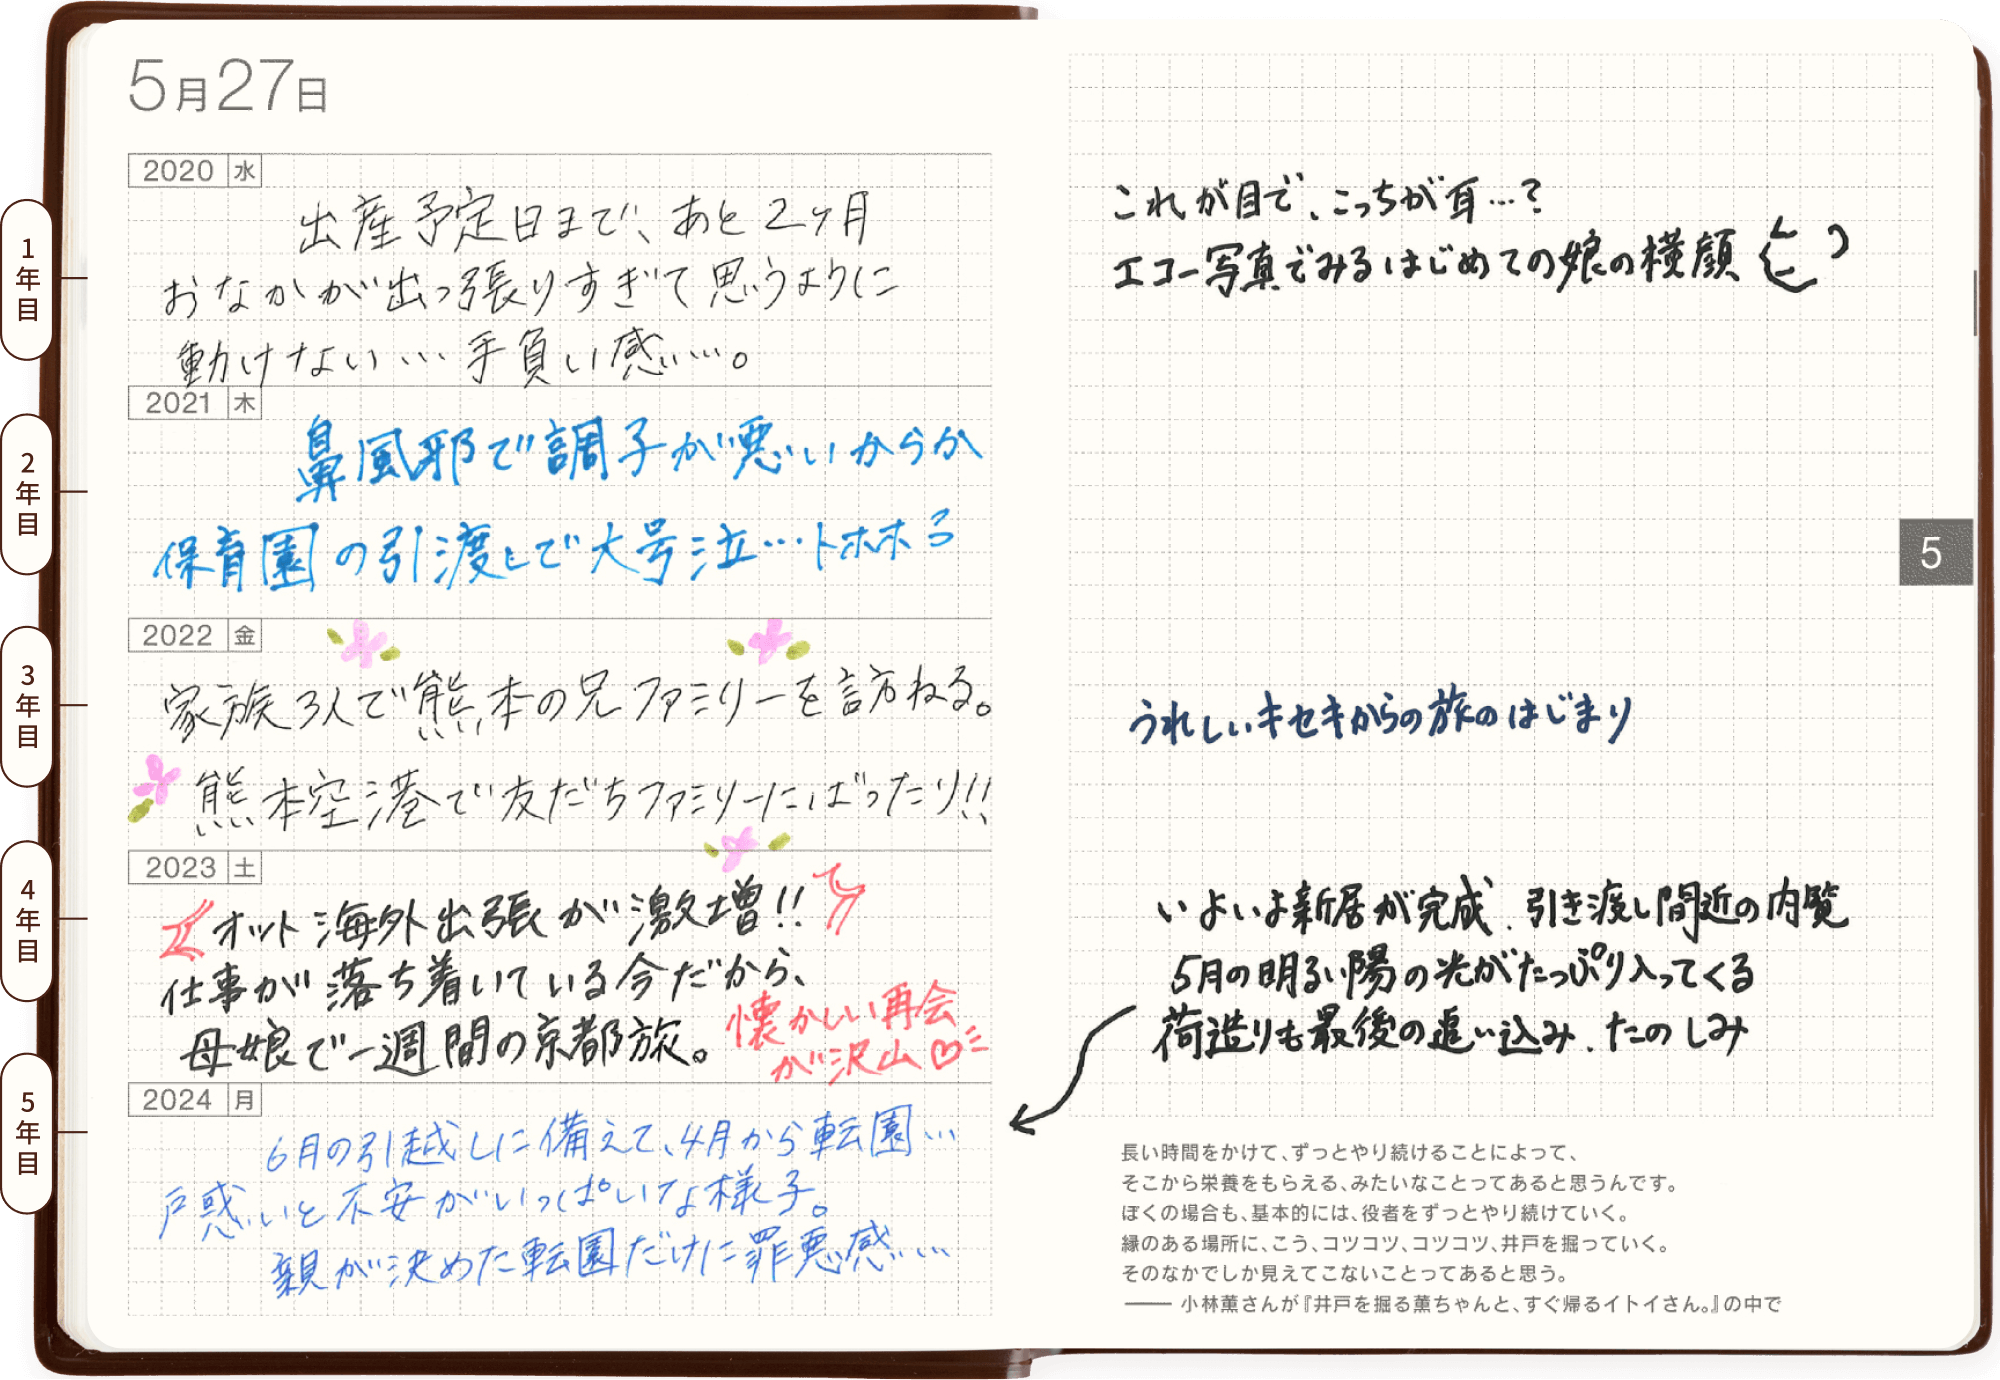 5月27日
1年目
2020 水
出産予定日まで、あと2ヶ月
おなかが出っ張りすぎて思うように
動けない…手負い感……。
2年目
2021 木
鼻風邪で調子が悪いからか
保育園の引渡しで大号泣…トホホ
3年目
2022 金
家族3人で熊本の兄ファミリーを訪ねる。
熊本空港で友だちファミリーにばったり!!
4年目
2023 土
オット海外出張が激増!!
仕事が落ち着いている今だから、
母娘で一週間の京都旅。
懐かしい再会
が沢山♡
5年目
2024 月
6月の引越しに備えて、4月から転園…
戸惑いと不安がいっぱいな様子。
親が決めた転園だけに罪悪感……
これが目で、こっちが耳…?
エコー写真でみるはじめての娘の横顔
うれしいキセキからの旅のはじまり
いよいよ新居が完成.引き渡し間近の内覧
5月の明るい陽の光がたっぷり入ってくる
荷造りも最後の追い込み.たのしみ
5
長い時間をかけて、ずっとやり続けることによって、
そこから栄養をもらえる、みたいなことってあると思うんです。
ぼくの場合も、基本的には、役者をずっとやり続けていく。
縁のある場所に、こう、コツコツ、コツコツ、井戸を掘っていく。
そのなかでしか見えてこないことってあると思う。
―― 小林薫さんが『井戸を掘る薫ちゃんと、すぐ帰るイトイさん。』の中で